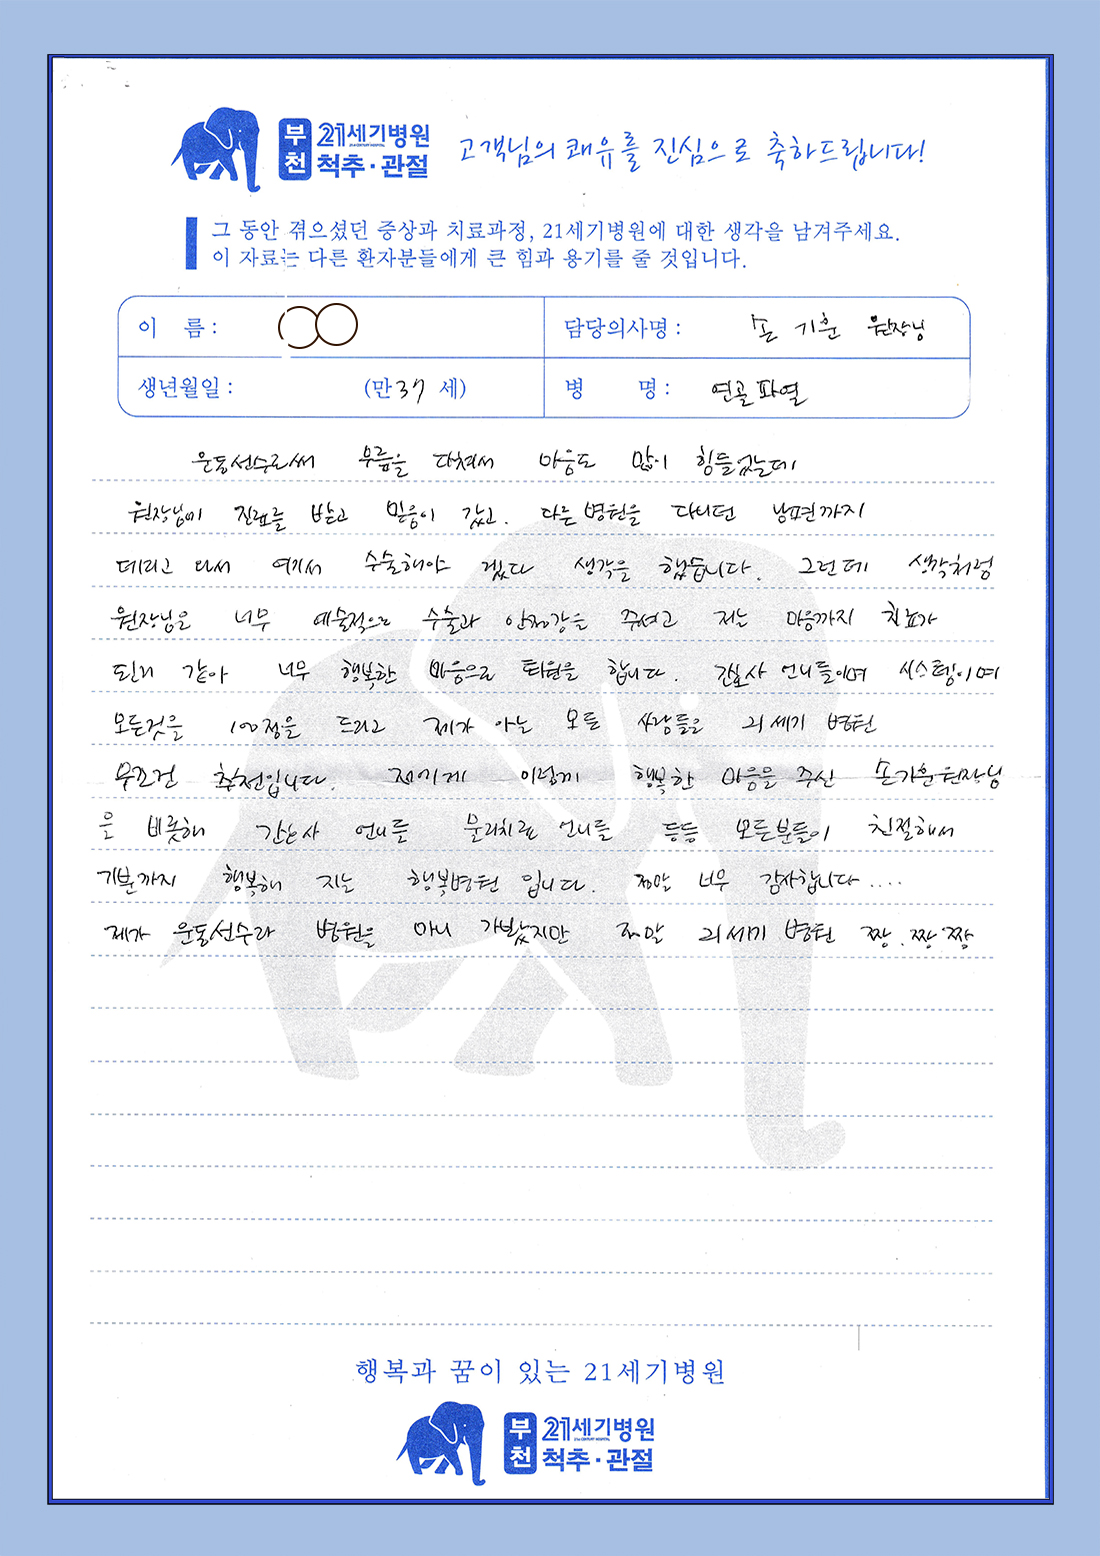 부천 21세기병원 척추·관절
고객님의 쾌유를 진심으로 축하드립니다!
그 동안 겪으셨던 증상과 치료과정, 21세기병원에 대한 생각을 남겨주세요.
이 자료는 다른 환자분들에게 큰 힘과 용기를 줄 것입니다.
이 름 : 담당의사명 : 손기훈 원장님
생년월일 : (만 37 세) 병 명 : 연골파열
운동선수로써 무릎을 다쳐서 마음도 많이 힘들었는데
원장님께 진료를 받고 믿음이 갔고. 다른병원을 다니던 남편까지
데리고 다시 여기서 수술해야 겠다 생각을 했습니다. 그런데 생각처럼
원장님은 너무 예술적으로 수술과 안정감을 주셔고 저는 마음까지 치료가
된거 같아 너무 행복한 마음으로 퇴원을 합니다. 간호사 언니들이며 시스템이며
모든것을 100점을 드리고 제가 아는 모든 사람들을 21세기 병원
무조건 추천입니다. 저에게 이렇게 행복한 마음을 주신 손기훈원장님
을 비롯해 간호사 언니들 물리치료 언니들 등등 모든분들이 친절해서
기분까지 행복해 지는 행복병원 입니다. 정말 너무 감사합니다....
제가 운동선수라 병원을 많이 가봤지만 정말 21세기 병원 짱.짱.짱
행복과 꿈이 있는 21세기병원
부천 21세기병원 척추·관절